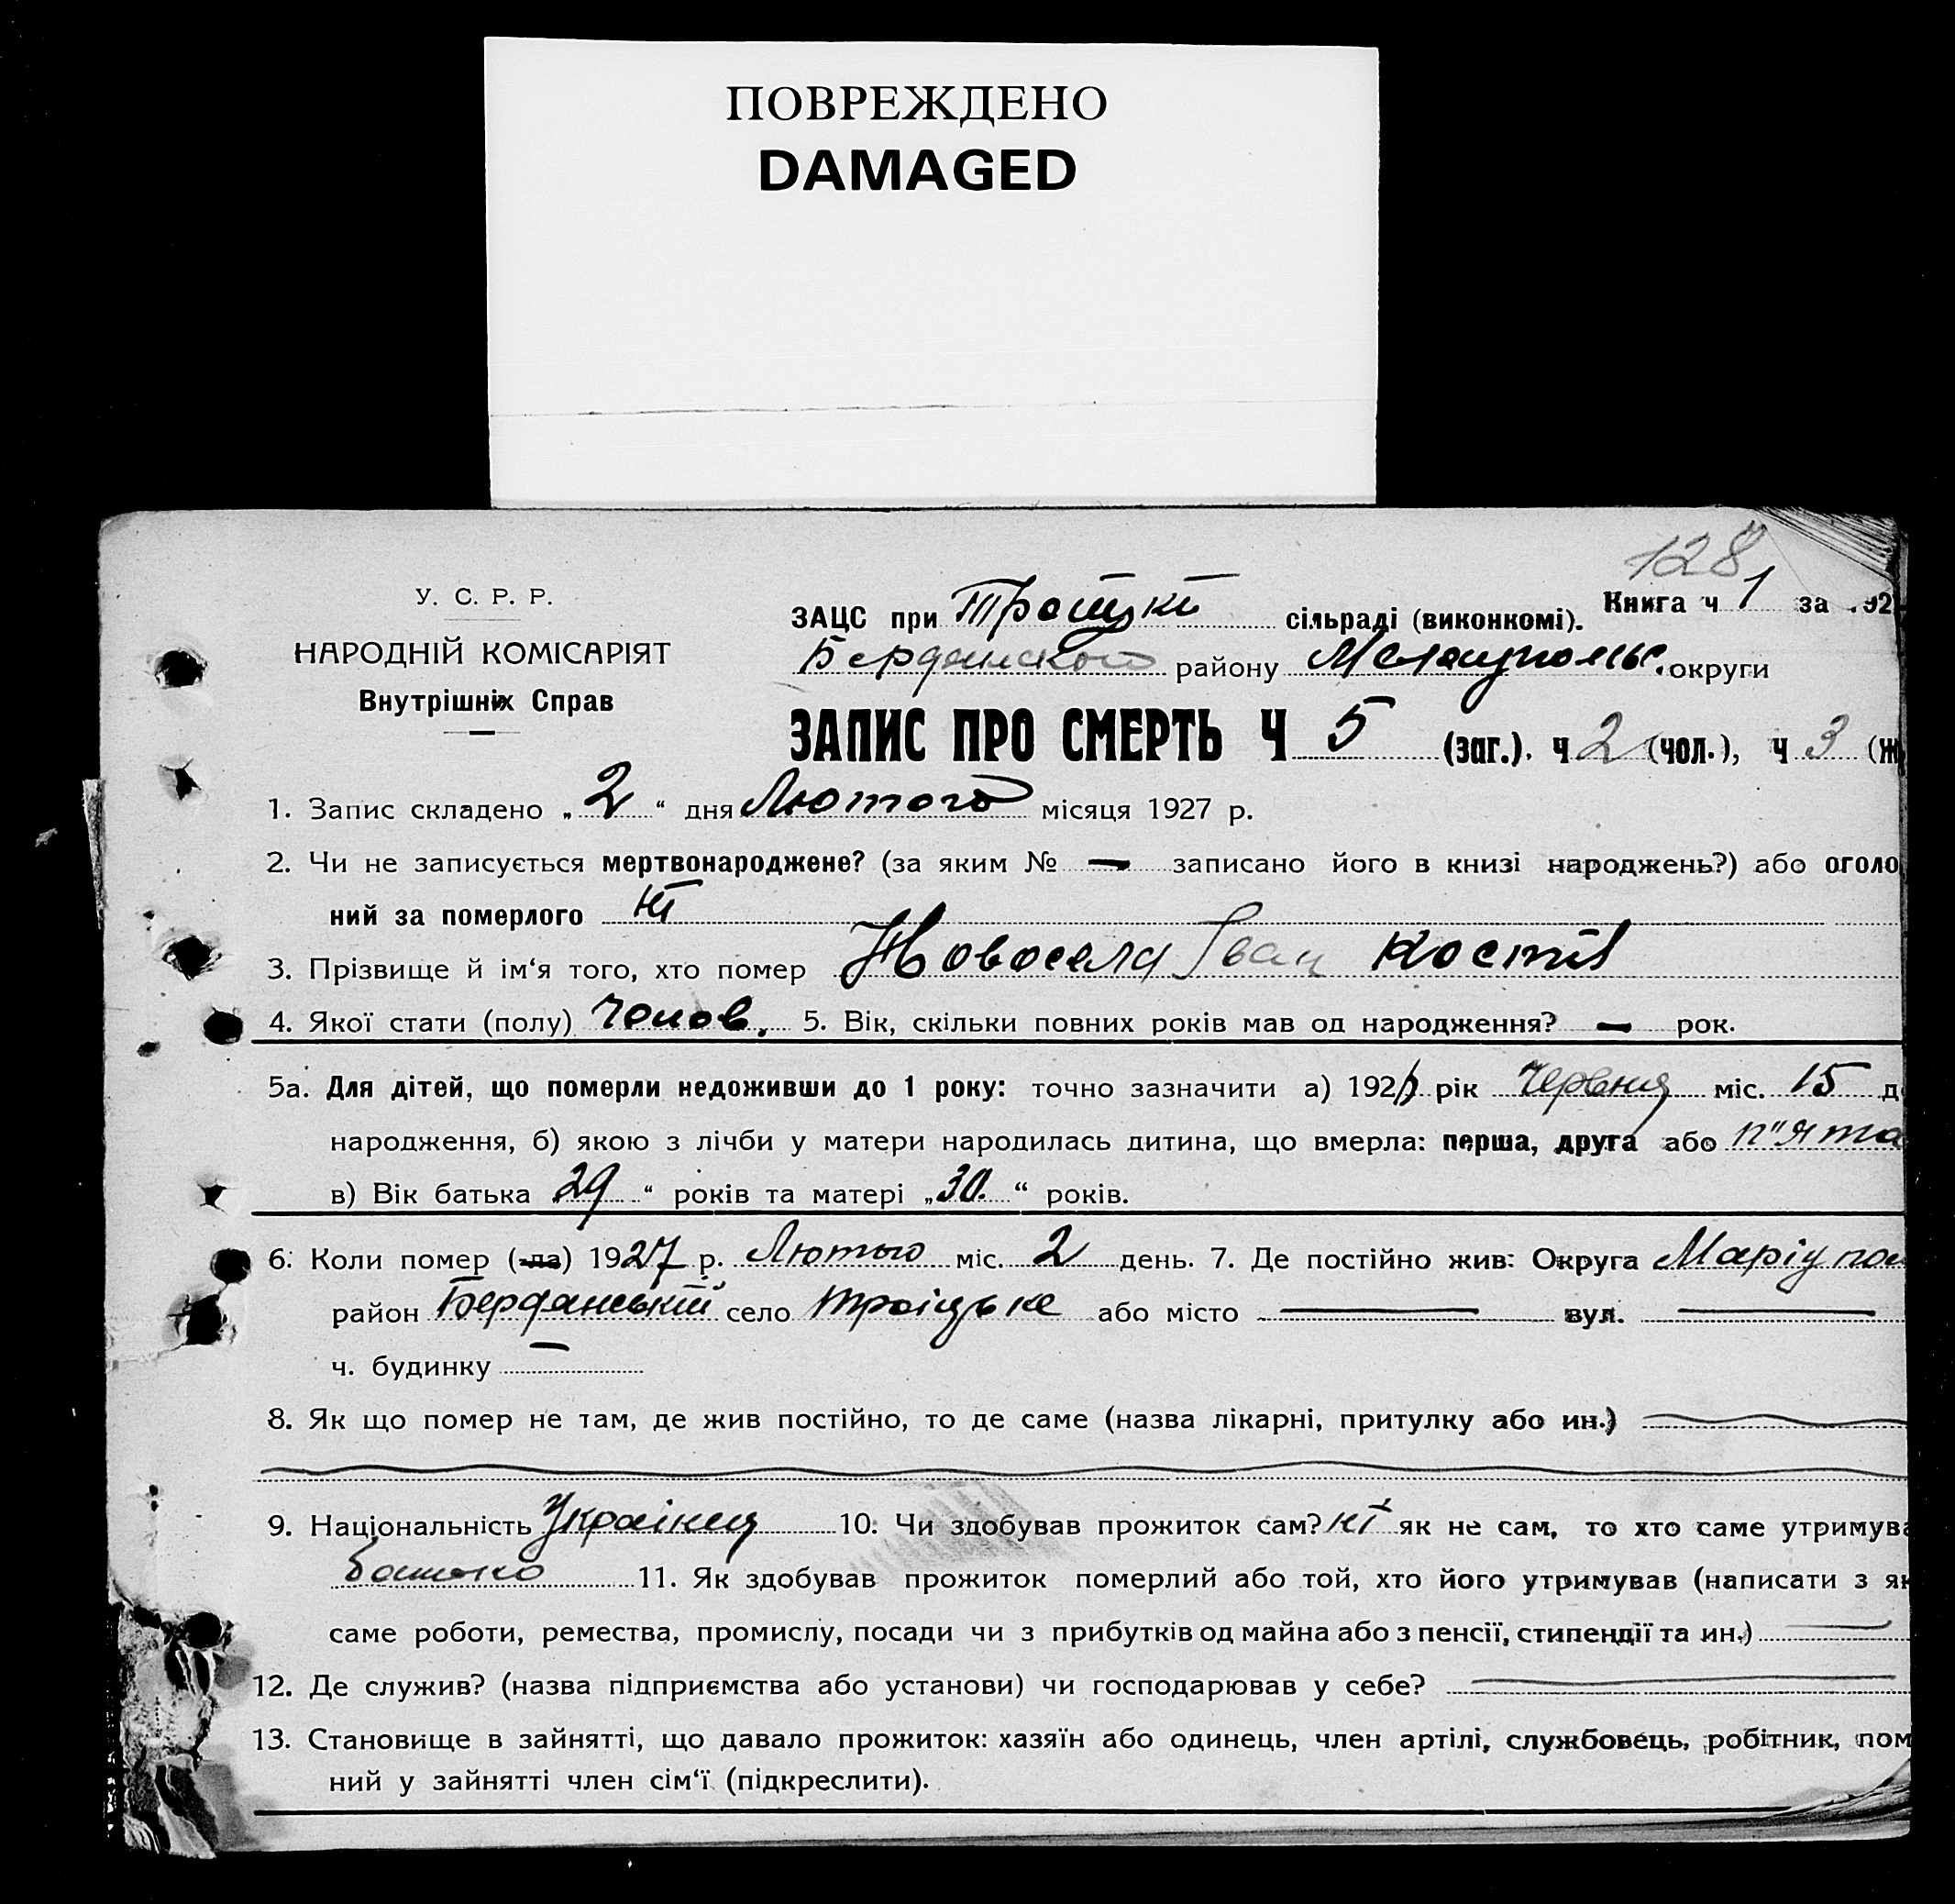 ПОВРЕЖДЕНО
DAMAGED
128
У. С. Р. Р.
НАРОДНІЙ КОМІСАРІЯТ
Внутрішніх Справ
ЗАЦС при Троіцкій сільраді (виконкомі). Книга ч 1 за 192
Бердянского району округи
ЗАПИС ПРО СМЕРТЬ Ч 5 (заг.). ч 2 (чол.), ч 3 (ж
1. Запис складено „ 2 “ дня Лютого місяця 1927 р.
2. Чи не записується мертвонароджене? (за яким № — записано його в книзі народжень?) або оголо
ний за померлого Ні
3. Прізвище й ім‘я того, хто помер Новосела Іван Костів
4. Якої стати (полу) Чолов. 5. Вік, скільки повних років мав од народження? — рок.
5а. Для дітей, що померли недоживши до 1 року: точно зазначити а) 192 рік Червня міс. 15 д
народження, б) якою з лічби у матери народилась дитина, що вмерла: перша, друга або п"ята
в) Вік батька „29“ років та матері „30.“ років.
6. Коли помер (-ла) 1927 р. Лютого міс. 2 день. 7. Де постійно жив: Округа Маріупол
район Бердянський село Троіцьке або місто — вул. —
ч. будинку —
8. Як що помер не там, де жив постійно, то де саме (назва лікарні, притулку або ин.)
9. Національність 10. Чи здобував прожиток сам? ні як не сам, то хто саме утримува
батько 11. Як здобував прожиток померлий або той, хто його утримував (написати з як
саме роботи, ремества, промислу, посади чи з прибутків од майна або з пенсії, стипендії та ин.) —
12. Де служив? (назва підприємства або установи) чи господарював у себе? —
13. Становище в зайнятті, що давало прожиток: хазяїн або одинець, член артілі, службовець, робітник, пом
ний у зайнятті член сім‘ї (підкреслити).